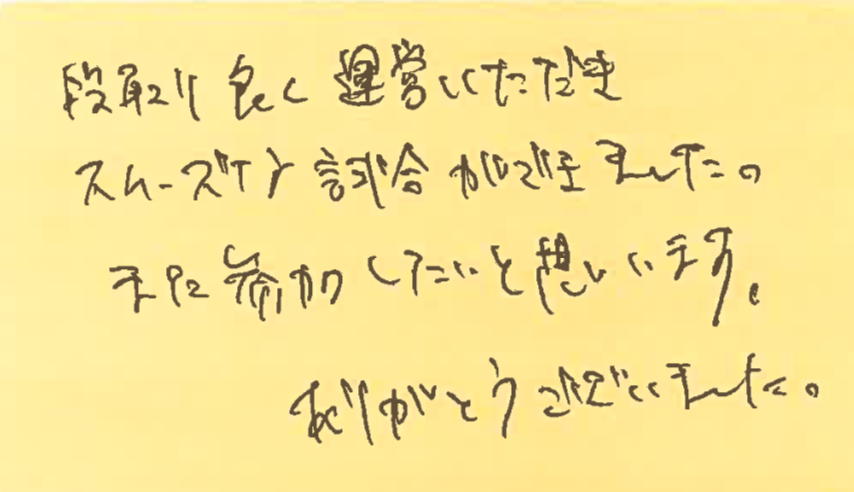 段取り良く運営いただき
スムーズな試合ができました。
また参加したいと思います。
ありがとうございました。